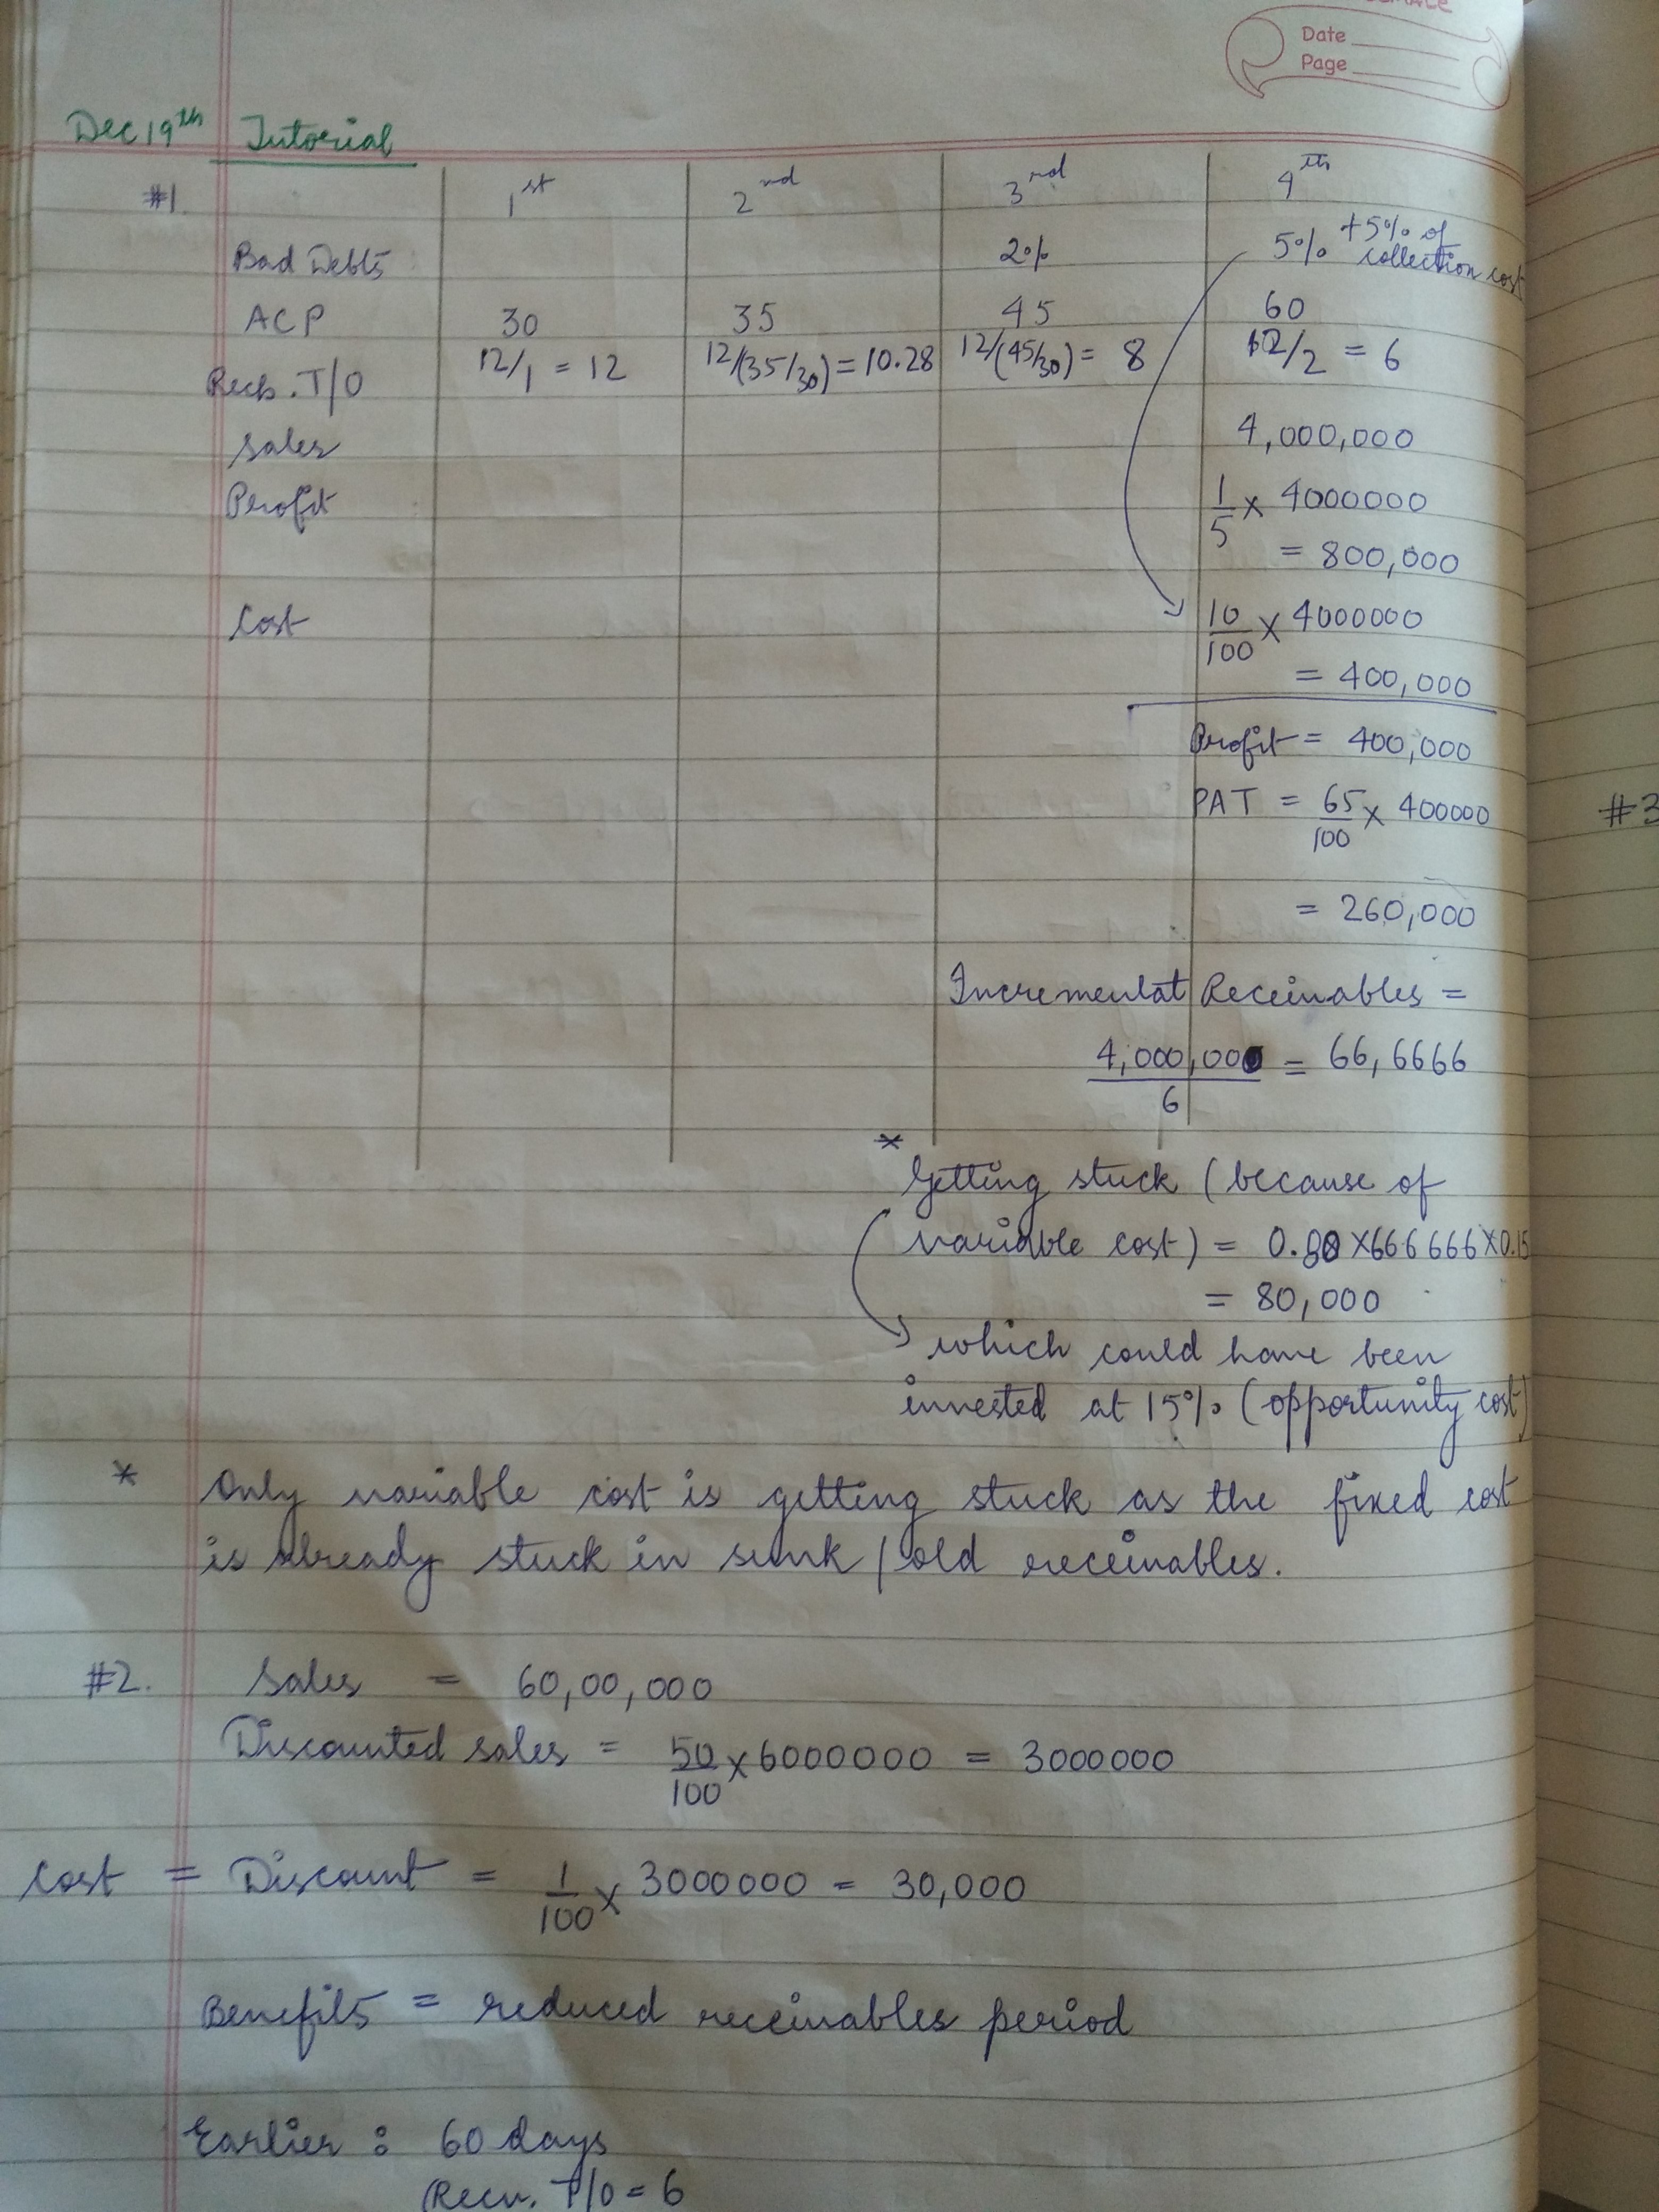 Date
Page
Dec 19th Tutorial
#1. 1st 2nd 3rd 4th
Bad Debts 2% 5% +5% of collection cost
ACP 30 35 45 60
Recb. T/O 12/1 = 12 12/(35/30) = 10.28 12/(45/30) = 8 12/2 = 6
Sales 4,000,000
Profit 1/5 × 4000000
= 800,000
Cost 10/100 × 4000000
= 400,000
Profit = 400,000
PAT = 65/100 × 400000
= 260,000
#3
Incremental Receivables =
4,000,000/6 = 66,6666
* Getting stuck (because of
variable cost) = 0.80 × 666 666 × 0.15
= 80,000
which could have been
invested at 15% (opportunity cost)
* Only variable cost is getting stuck as the fixed cost
is already stuck in sunk / old receivables.
#2. Sales = 60,00,000
Discounted sales = 50/100 × 6000000 = 3000000
Cost = Discount = 1/100 × 3000000 = 30,000
Benefits = reduced receivables period
Earlier : 60 days
(Recv. T/O = 6